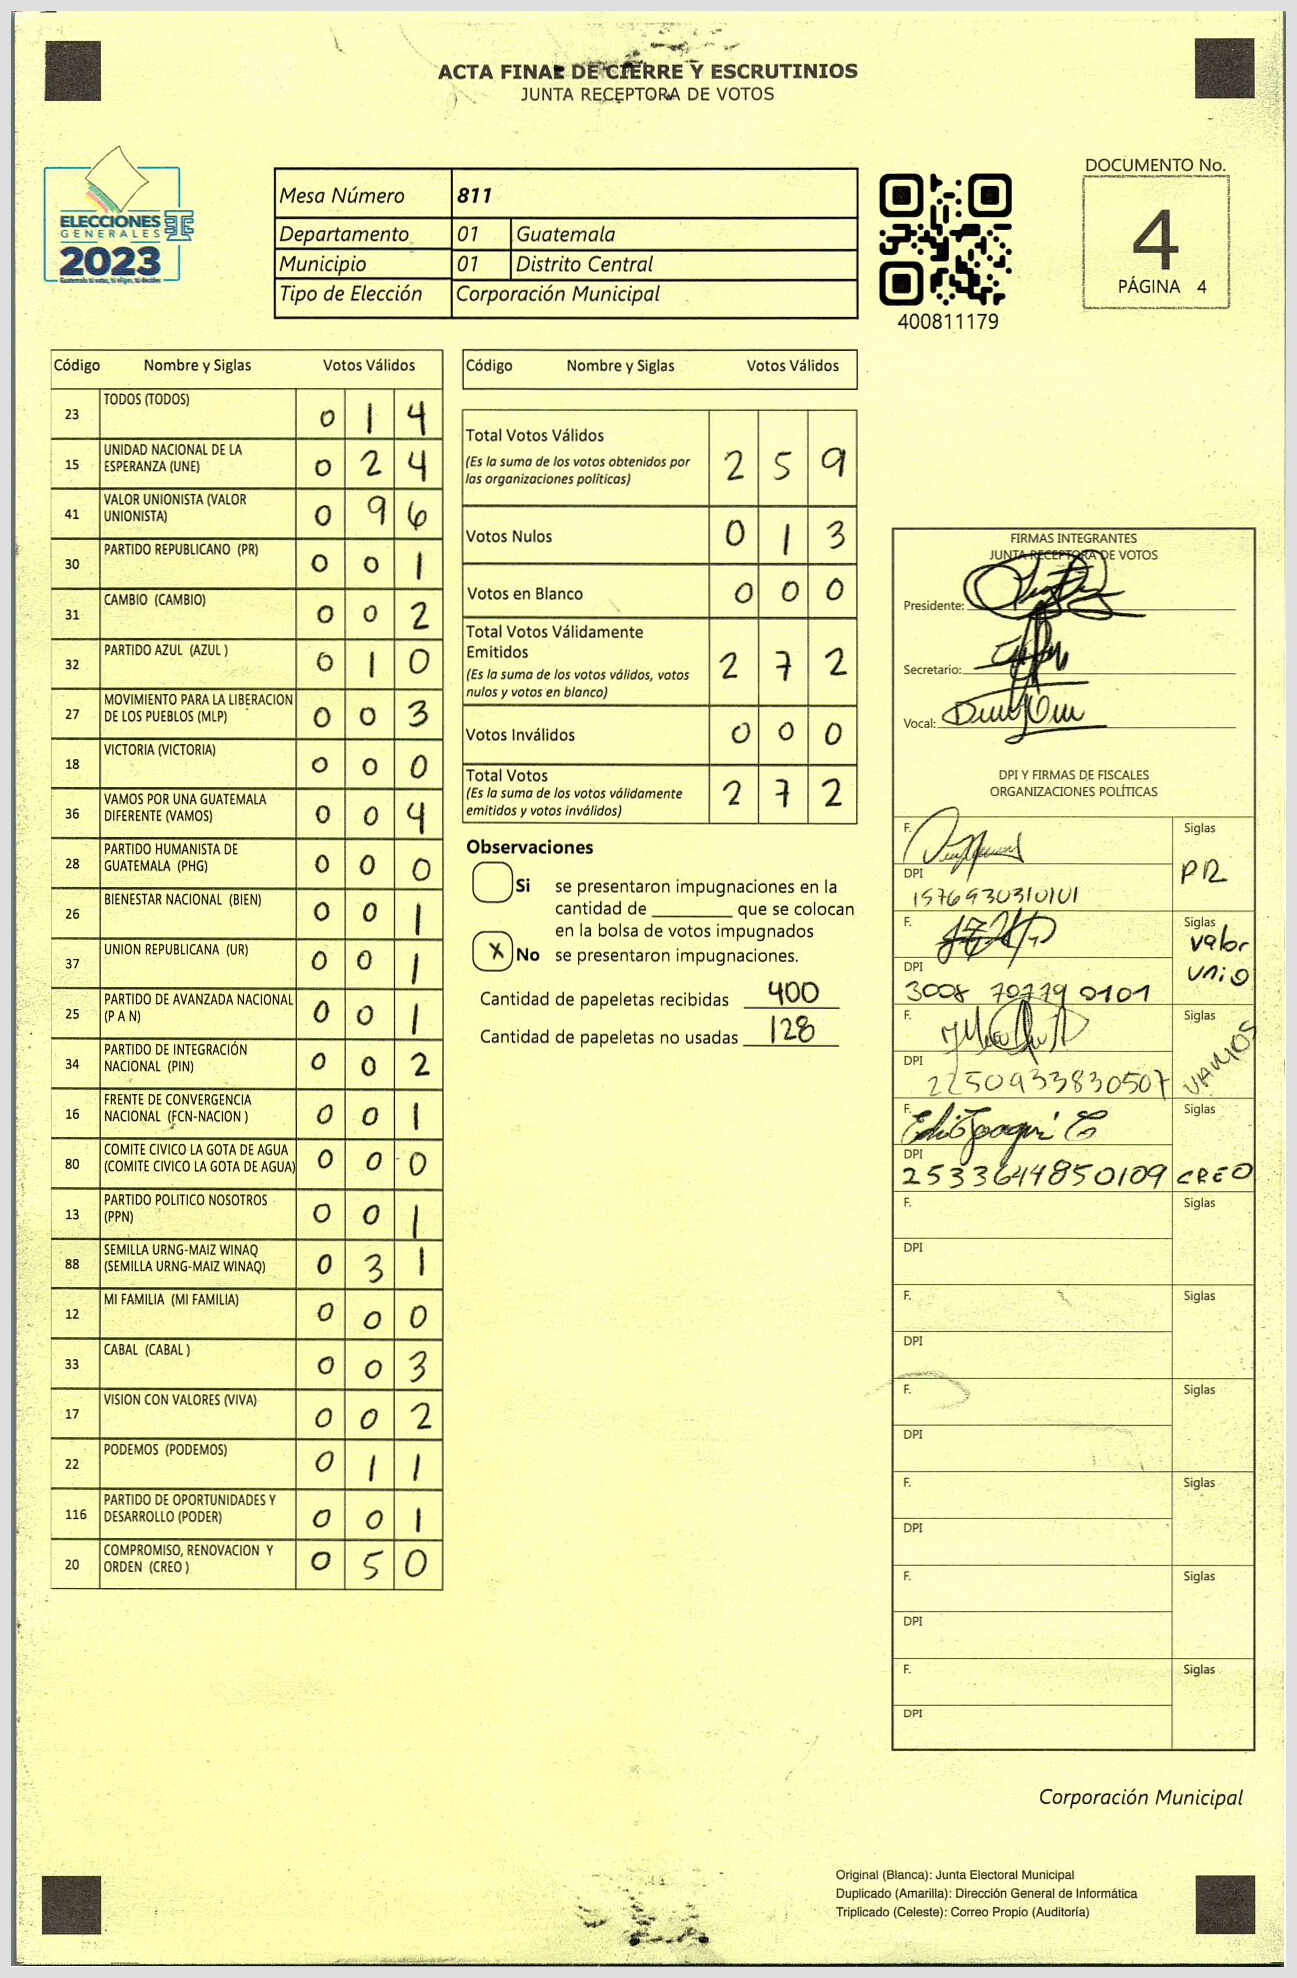 ACTA FINAL DE CIERRE Y ESCRUTINIOS
JUNTA RECEPTORA DE VOTOS
ELECCIONES
GENERALES
2023
Guatemala tú votas, tú eliges, tú decides
Mesa Número 811
Departamento 01 Guatemala
Municipio 01 Distrito Central
Tipo de Elección Corporación Municipal
400811179
DOCUMENTO No.
4
PÁGINA 4
Código Nombre y Siglas Votos Válidos
23 TODOS (TODOS) 0 1 4
15 UNIDAD NACIONAL DE LA
ESPERANZA (UNE) 0 2 4
41 VALOR UNIONISTA (VALOR
UNIONISTA) 0 9 6
30 PARTIDO REPUBLICANO (PR) 0 0 1
31 CAMBIO (CAMBIO) 0 0 2
32 PARTIDO AZUL (AZUL ) 0 1 0
27 MOVIMIENTO PARA LA LIBERACION
DE LOS PUEBLOS (MLP) 0 0 3
18 VICTORIA (VICTORIA) 0 0 0
36 VAMOS POR UNA GUATEMALA
DIFERENTE (VAMOS) 0 0 4
28 PARTIDO HUMANISTA DE
GUATEMALA (PHG) 0 0 0
26 BIENESTAR NACIONAL (BIEN) 0 0 1
37 UNION REPUBLICANA (UR) 0 0 1
25 PARTIDO DE AVANZADA NACIONAL
(P A N) 0 0 1
34 PARTIDO DE INTEGRACIÓN
NACIONAL (PIN) 0 0 2
16 FRENTE DE CONVERGENCIA
NACIONAL (FCN-NACION ) 0 0 1
80 COMITE CIVICO LA GOTA DE AGUA
(COMITE CIVICO LA GOTA DE AGUA) 0 0 0
13 PARTIDO POLITICO NOSOTROS
(PPN) 0 0 1
88 SEMILLA URNG-MAIZ WINAQ
(SEMILLA URNG-MAIZ WINAQ) 0 3 1
12 MI FAMILIA (MI FAMILIA) 0 0 0
33 CABAL (CABAL ) 0 0 3
17 VISION CON VALORES (VIVA) 0 0 2
22 PODEMOS (PODEMOS) 0 1 1
116 PARTIDO DE OPORTUNIDADES Y
DESARROLLO (PODER) 0 0 1
20 COMPROMISO, RENOVACION Y
ORDEN (CREO ) 0 5 0
Código Nombre y Siglas Votos Válidos
Total Votos Válidos
(Es la suma de los votos obtenidos por
las organizaciones políticas) 2 5 9
Votos Nulos 0 1 3
Votos en Blanco 0 0 0
Total Votos Válidamente
Emitidos
(Es la suma de los votos válidos, votos
nulos y votos en blanco) 2 7 2
Votos Inválidos 0 0 0
Total Votos
(Es la suma de los votos válidamente
emitidos y votos inválidos) 2 7 2
Observaciones
Si se presentaron impugnaciones en la
cantidad de ________ que se colocan
en la bolsa de votos impugnados
X No se presentaron impugnaciones.
Cantidad de papeletas recibidas 400
Cantidad de papeletas no usadas 128
FIRMAS INTEGRANTES
JUNTA RECEPTORA DE VOTOS
Presidente:
Secretario:
Vocal:
DPI Y FIRMAS DE FISCALES
ORGANIZACIONES POLÍTICAS
F. Siglas
PR
DPI
1576930310101
F. Siglas
valor
unio
DPI
3008 70779 0101
F. Siglas
VAMOS
DPI
2250933830507
F. Siglas
DPI
2533644850109 CREO
F. Siglas
DPI
F. Siglas
DPI
F. Siglas
DPI
F. Siglas
DPI
F. Siglas
DPI
F. Siglas
DPI
Corporación Municipal
Original (Blanca): Junta Electoral Municipal
Duplicado (Amarilla): Dirección General de Informática
Triplicado (Celeste): Correo Propio (Auditoría)